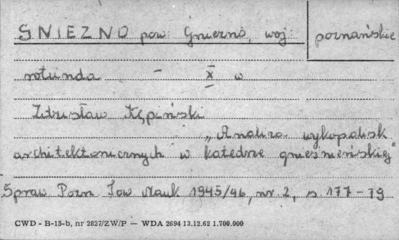 GNIEZNO pow. Gniezno, woj. poznańskie
rotunda - X w
Zdzisław Kępiński
"Analiza wykopalisk
architektonicznych w katedrze gnieźnieńskiej"
Spraw Pozn Tow Nauk 1945/46, nr 2, s 177-79
CWD - B-15-b, nr 2827/ZW/P — WDA 2694 13.12.62 1.700.000